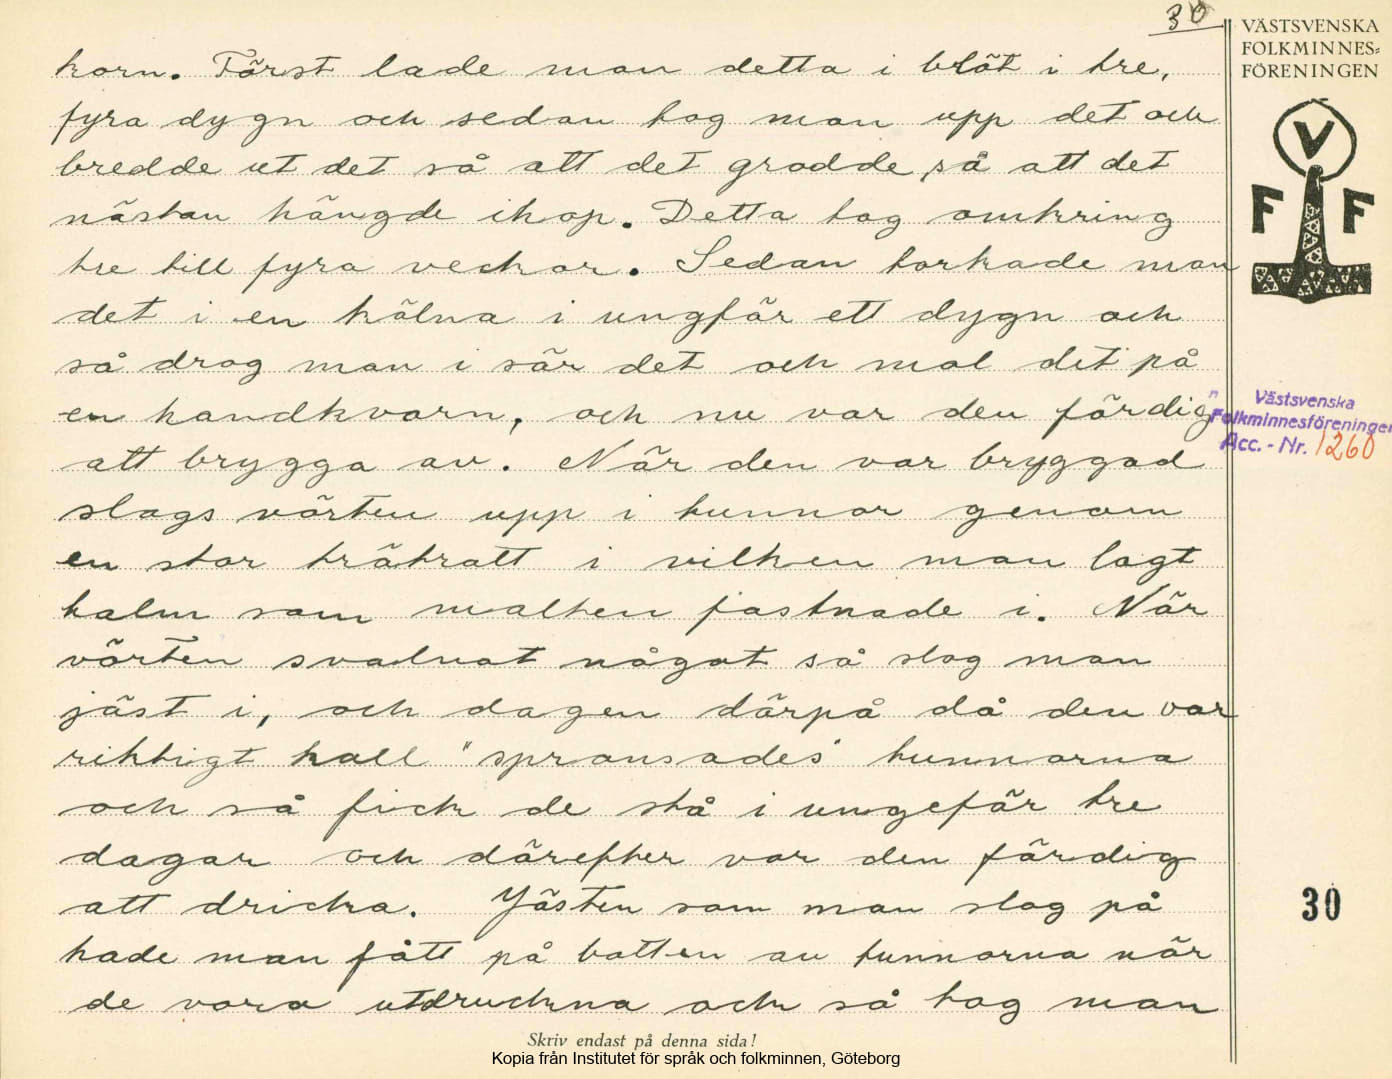 30
VÄSTSVENSKA
FOLKMINNES=
FÖRENINGEN
V
F F
korn. Först lade man detta i blöt i tre,
fyra dygn och sedan tog man upp det och
bredde ut det så att det grodde, så att det
nästan hängde ihop. Detta tog omkring
tre till fyra veckor. Sedan torkade man
det i en kölna i ungfär ett dygn och
så drog man i sär det och mol det på
en handkvarn, och nu var den färdig
att brygga av. När den var bryggad
slogs vörten upp i tunnor genom
en stor trätratt i vilken man lagt
halm som malten fastnade i. När
vörten svalnat något så slog man
jäst i, och dagen därpå då den var
riktigt kall "spronsades" tunnorna
och så fick de stå i ungefär tre
dagar och därefter var den färdig
att dricka. Jästen som man slog på
hade man fått på botten av tunnorna när
de voro utdruckna och så tog man
Västsvenska
Folkminnesföreningen
Acc. - Nr. 1260
30
Skriv endast på denna sida!
Kopia från Institutet för språk och folkminnen, Göteborg